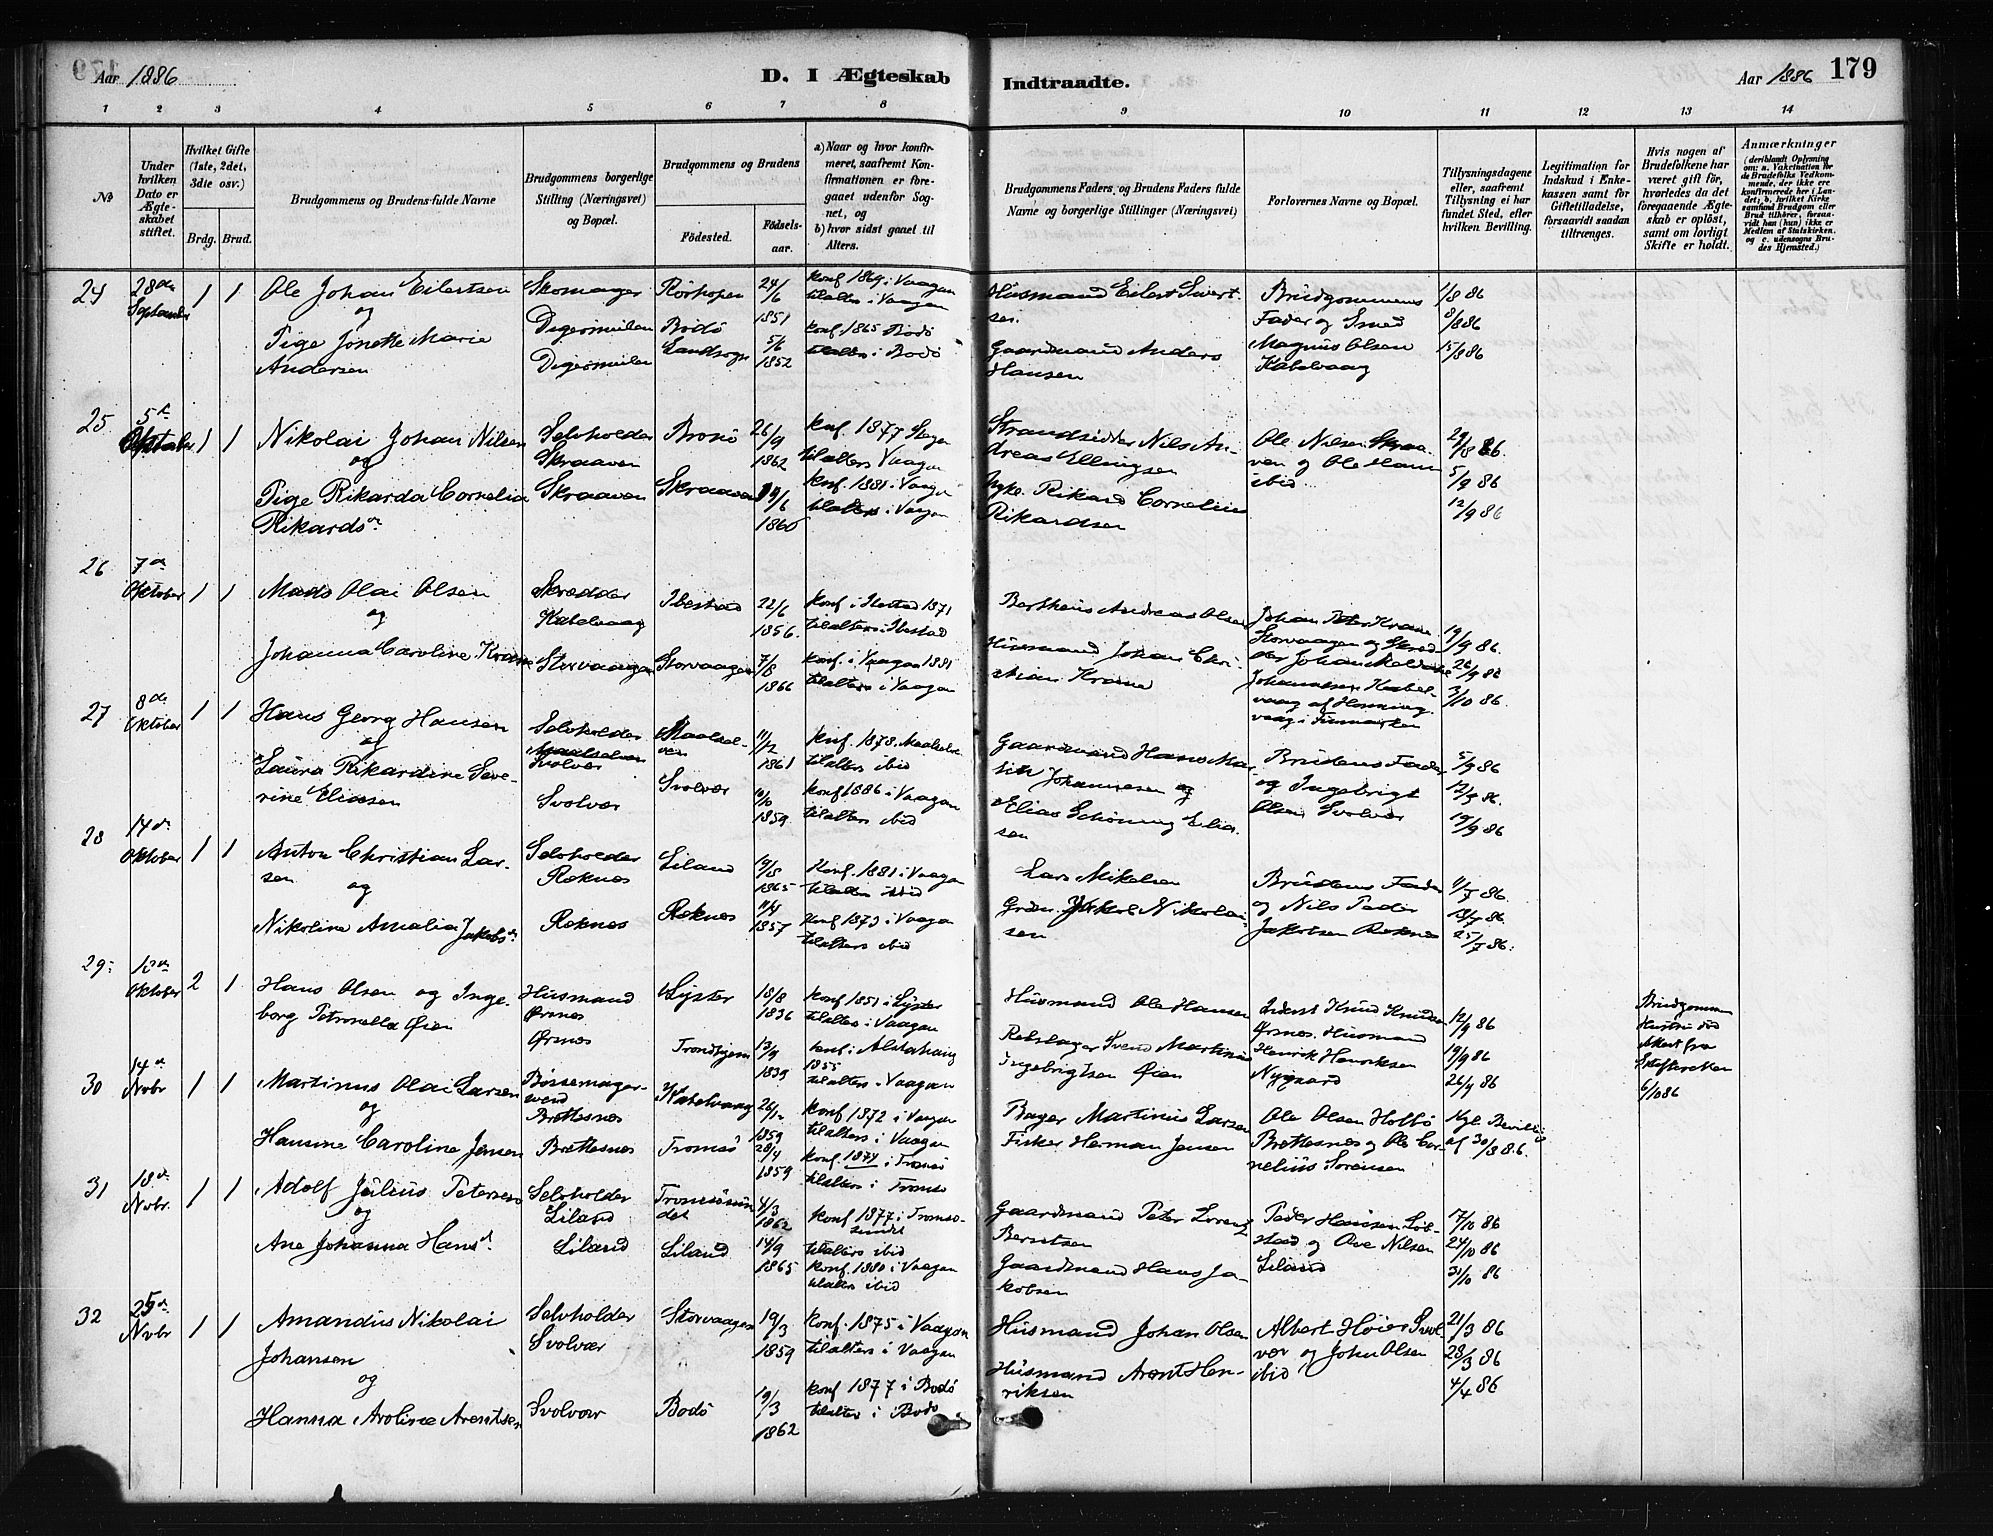 Aar 1886 D. I Ægteskab Indtraadte. Aar 1886 179
1 2 3 4 5 6 7 8 9 10 11 12 13 14
No
Under hvilken Dato er Ægteskabet stiftet.
Hvilket Gifte (1ste, 2det, 3die osv.)
Brdg. Brud.
Brudgommens og Brudens fulde Navne
Brudgommens borgerlige Stilling (Næringsvei) og Bopæl.
Brudgommens og Brudens
Födested. Födselsaar.
a) Naar og hvor konfirmeret, saafremt Konfirmationen er foregaaet udenfor Sognet, og
b) hvor sidst gaaet til Alters.
Brudgommens Faders, og Brudens Faders fulde Navne og borgerlige Stillinger (Næringsvei)
Forlovernes Navne og Bopæl.
Tillysningsdagene eller, saafremt Tillysning ei har fundet Sted, efter hvilken Bevilling.
Legitimation for Indskud i Enkekassen samt for Giftetilladelse, forsaavidt saadan tiltrænges.
Hvis nogen af Brudefolkene har været gift för, hvorledes da det foregaaende Ægteskab er oplöst, samt om lovligt Skifte er holdt.
Anmærkninger
(deriblandt Oplysning om: a. Vakcination for de Brudefolks Vedkommende, der ikke ere konfirmerede her i Landet; b. hvilket Kirkesamfund Brudgom eller Brud tilhörer, forsaavidt han (hun) ikke er Medlem af Statskirken. og c. udensogns Brudes Hjemsted.)
24 28de September 1 1 Ole Johan Eilertsen og Pige Jonette Marie Andersen
Skomager Digermulen Digermulen
Rørhopen 24/6 1851
Bodö Landsogn 5/6 1852
konf 1869 i Vaagan tilalters i Vaagan
konf. 1865 Bodö tilalters i Bodö
Husmand Eilert Sivertsen.
Gaardmand Anders Hansen
Brudgommens Fader og Smed Magnus Olsen Kabelvaag
1/8 86 8/8 86 15/8 86
25 5te Oktober 1 1 Nikolai Johan Nilsen og Pige Rikarda Cornelia Rikardsdr
Selvholder Skraaven Skraaven
26/9 1862
Skraaven
konf. 1877 tilalters Vaagan
konf. 1881 i Vaagan tilalters i Vaagan
Strandsidder Nils Andreas Ellingsen
Rikard Cornelius Rikardsen
Ole Nilsen Skraaven og Ole Ham ibid
29/8 86. 5/9 86 12/9 86
26 7de Oktober 1 1 Mads Olai Olsen og Johanna Caroline Krane
Skrædder Kabelvaag Storvaagen
Ibestad 22/6 1856.
Storvaagen 7/8 1866
Konf i Ibestad 1871 tilalters i Ibestad
konf. i Vaagan 1881 tilalters i Vaagan
Bertheus Andreas Olsen
Husmand Johan Christian Krane
Johan Peter Krane Storvaagen og Skrædder Johan Johannesen Kabelvaag af Honningvaag i Finmarken
19/9 86. 26/9 86 3/10 86
27 8de Oktober 1 1 Hans Georg Hansen og Laura Rikardine Severine Eliasen
Selvholder Svolvær Svolvær
Maalselven 11/12 1861
Svolvær 10/10 1859
Konf. 1878. Maalselv tilalters ibid
konf 1886 i Vaagan tilalters ibid
Gaardmand Hans Johannesen og
Elias Schöning Eliasen
Brudens Fader og Ingebrigt Olsen Svolvær
5/9 86 12/9 86. 19/9 86
28 14de Oktober 1 1 Anton Christian Larsen og Nikoline Amalia Jakobsdr
Selvholder Reknes Reknes
Liland 1865
Reknes 11/4 1857
Konf. 1881 i Vaagan tilalters ibid
Konf 1873 i Vaagan tilalters ibid
Lars Mikelsen
Jakob Nikolaisen
Brudens Fader og Nils Peder Jakobsen Reknes
11/7 86. 18/7 86. 25/7 86.
29. Oktober 2 1 Hans Olsen og Ingeborg Petronella Øien
Husmand Ørsnes Ørsnes
Lyster 18/8 1836
Trondhjem 13/9 1839
konf 1851 i Lyster tilalters i Vaagan
konf. i Alstahaug 1855 tilalters i Vaagan
Husmand Ole Hansen
Rebslager Svend Martinus Ingebrigtsen Øien
Inderst Knud Knudsen Ørsnes. Husmand Henrik Henriksen Nygaard
12/9 86 19/9 86 26/9 86
Brudgommens Hustru död Attest fra Skifteretten 6/10 86
30 14de Novbr 1 1 Martinus Olai Larsen og Hansine Caroline Jensen
Bössemagersvend Brettesnes Brettesnes
Kabelvaag 1859
Tromsö 28/4 1859
konf 1872 i Vaagan tilalters i Vaagan
konf. 1874 i Tromsö tilalters i Tromsö
Bager Martinus Larsen
Fisker Herman Jensen
Ole Olsen Holbö Brettesnes og Ole Cornelius Sörensen
Kgl. Bevilling af 30/8 86.
31 18de Novbr. 1 1 Adolf Julius Petersen og Ane Johanna Hansdr
Selvholder Liland Liland
Tromsösundet 4/3 1862
Liland 14/9 1865
Konf 1877 i Tromsösundet tilalters ibid
konf. 1880 i Vaagan tilalters ibid
Gaardmand Peter Lorentz Berntsen
Gaardmand Hans Jakobsen
Peder Hansen og Ove Nilsen Liland
17/10 86 24/10 86 31/10 86
32 25de Novbr 1 1 Amandus Nikolai Johansen og Hanna Aroline Arentsen
Selvholder Svolvær Svolvær
Storvaagen 19/3 1859
Bodö 19/3 1862
konf. 1875 i Vaagan tilalters i Vaagan
konf 1877 i Bodö tilalters i Bodö
Husmand Johan Olsen
Husmand Arent Henriksen
Albert Höier Svolvær og John Olsen ibid
21/3 86 28/3 86 4/4 86